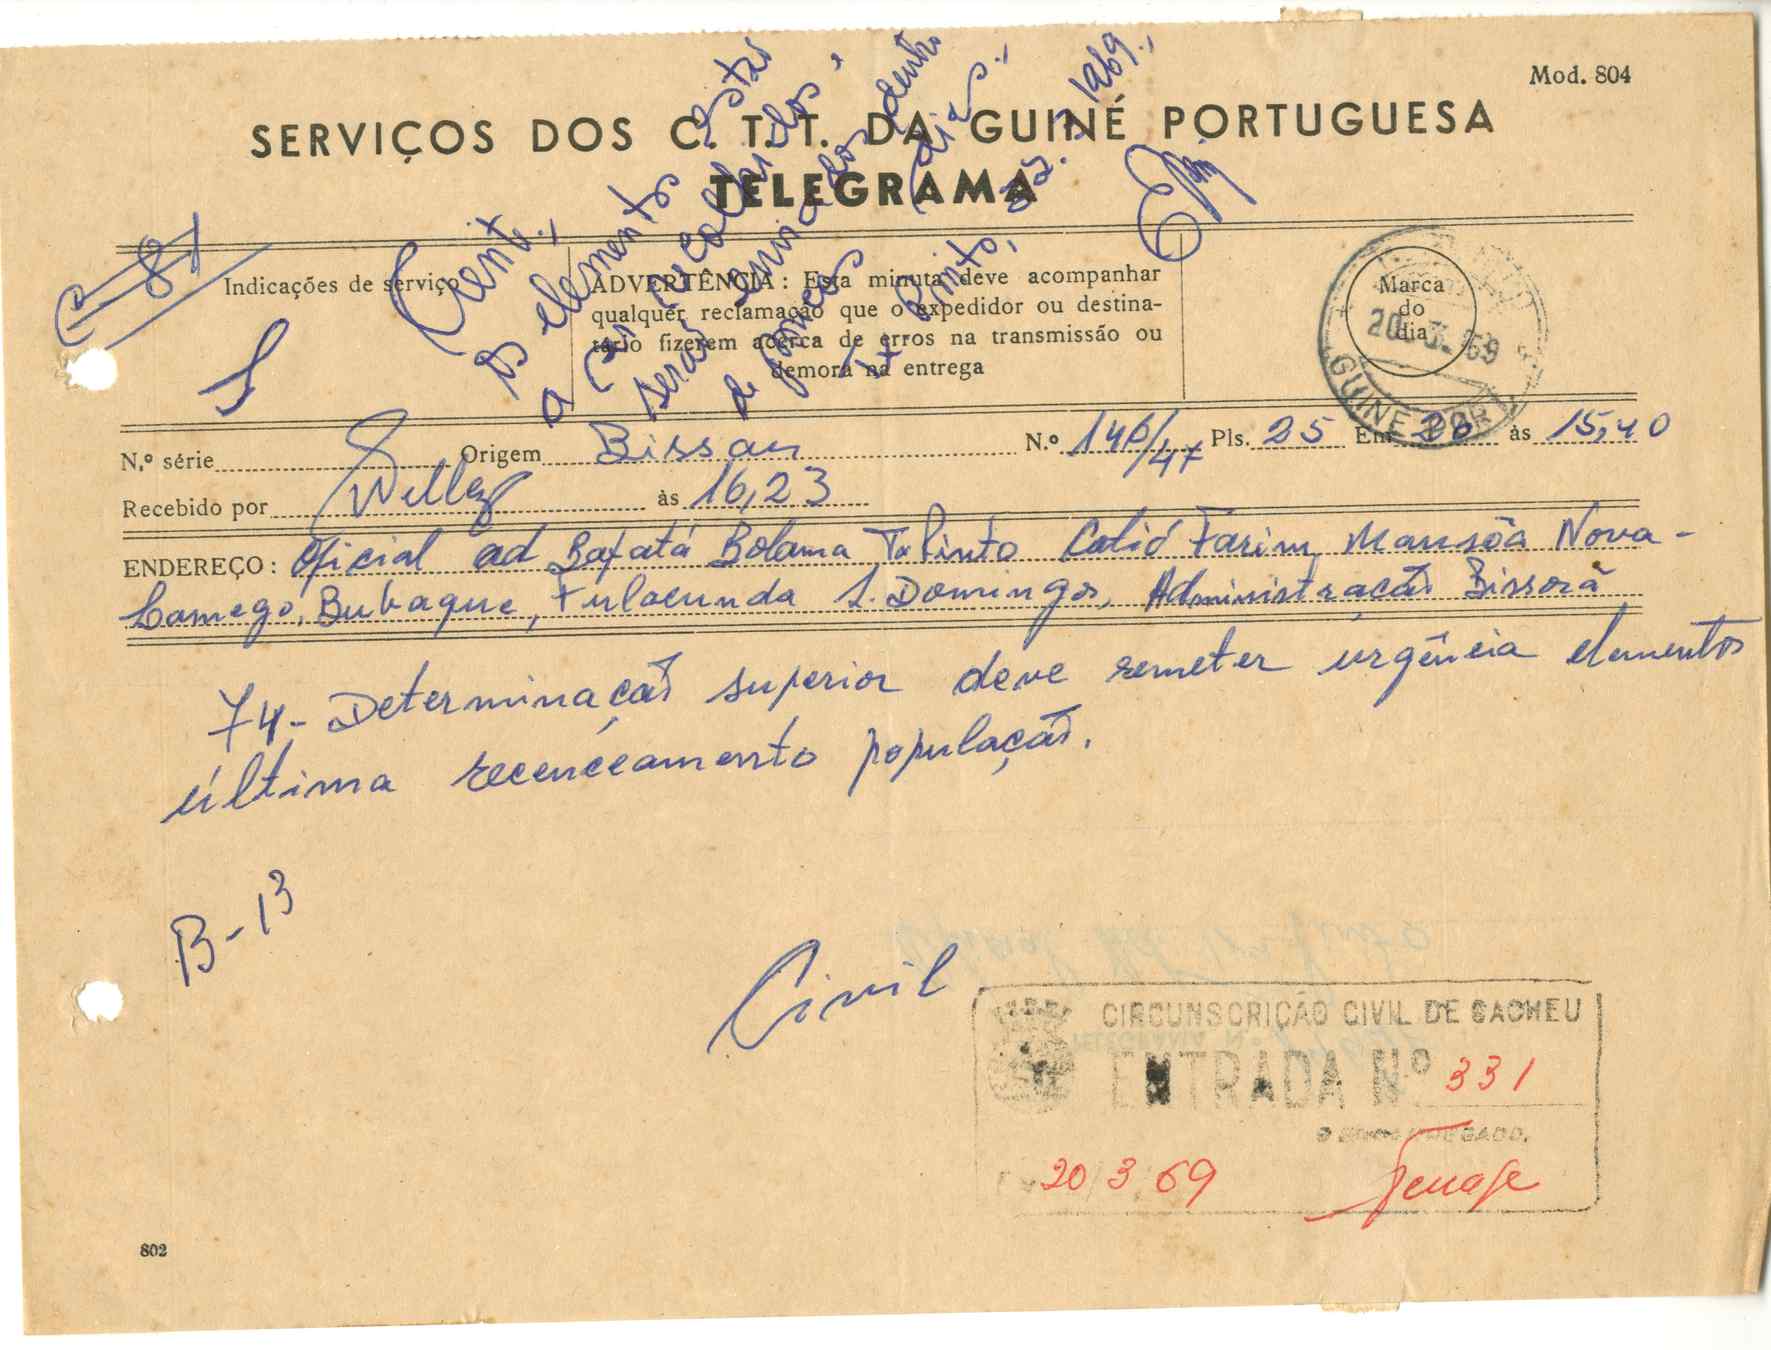 Mod. 804
SERVIÇOS DOS C. T.T. DA GUINÉ PORTUGUESA
TELEGRAMA
Cient.,
os elementos estão
a ser recolhidos,
serão enviados dentro
de poucos dias.,
3. 1969.,
Indicações de serviço
ADVERTÊNCIA : Esta minuta deve acompanhar
qualquer reclamação que o expedidor ou destina-
tário fizerem acerca de erros na transmissão ou
demora na entrega
Marca
do
dia
20. 3. 69
GUINÉ POR
N.º série Origem Bissau N.º 146/47 Pls. 25 Em 20 às 15,40
Recebido por às 16,23
ENDEREÇO : Oficial ad Bafatá Bolama Tx Pinto Catió Farim Mansôa Nova-
Lamego, Bubaque, Fulacunda S. Domingos, Administração Bissorã
74- Determinação superior deve remeter urgência elementos
última recenceamento população.
B-13
Civil
CIRCUNSCRIÇÃO CIVIL DE CACHEU
ENTRADA Nº 331
O ENCARREGADO,
20 / 3 / 69
802